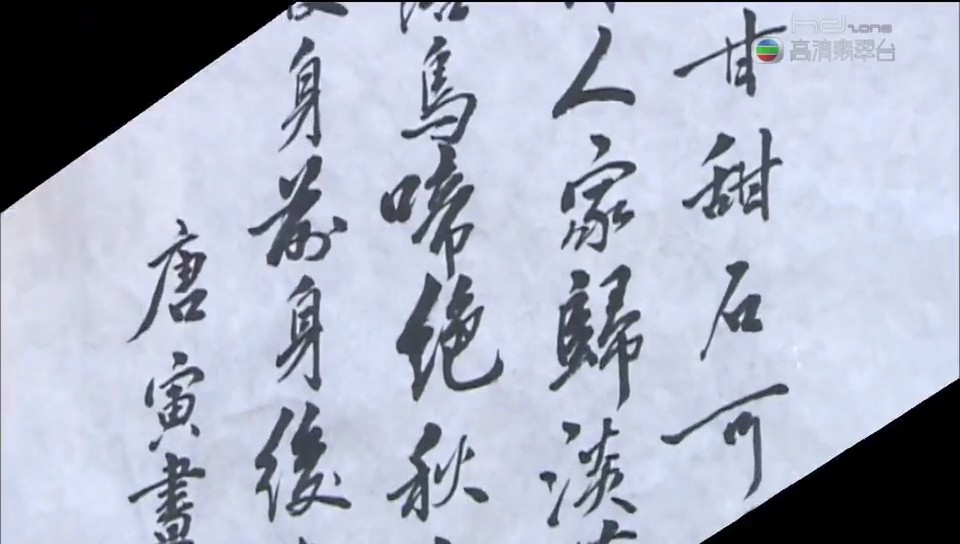 甘甜石可
人家歸淡
烏啼絕秋
身前身後
唐寅書
hd zone
高清翡翠台